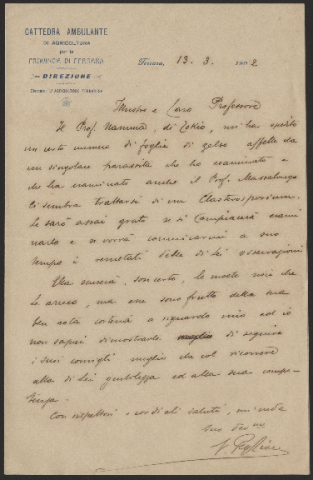 CATTEDRA AMBULANTE
DI AGRICOLTURA
per la
PROVINCIA DI FERRARA
DIREZIONE
Ferrara, 13. 3. 1902
Illustre e Caro Professore
Il Prof. di Tokio, mi ha spedito
un certo numero di foglie di gelso affette da
un singolare parassita che ho esaminato e
che ha esaminato anche il Prof. Massalongo
Ci sembra trattarsi di un Clasterosporium.
Le sarò assai grato se si compiacerà esami
narlo e se vorrà comunicarmi a suo
tempo i resultati delle di lei osservazioni
Mia scuserà, son certo, le molte noie che
le arreco, ma esse sono frutto della sua
ben nota cortesia a riguardo mio ed io
non saprei dimostrarle di seguire
i suoi consigli meglio che col ricorrere
alla di Lei gentilezza ed alla sua compe-
tenza.
Con rispettosi e cordiali saluti, mi creda
Suo